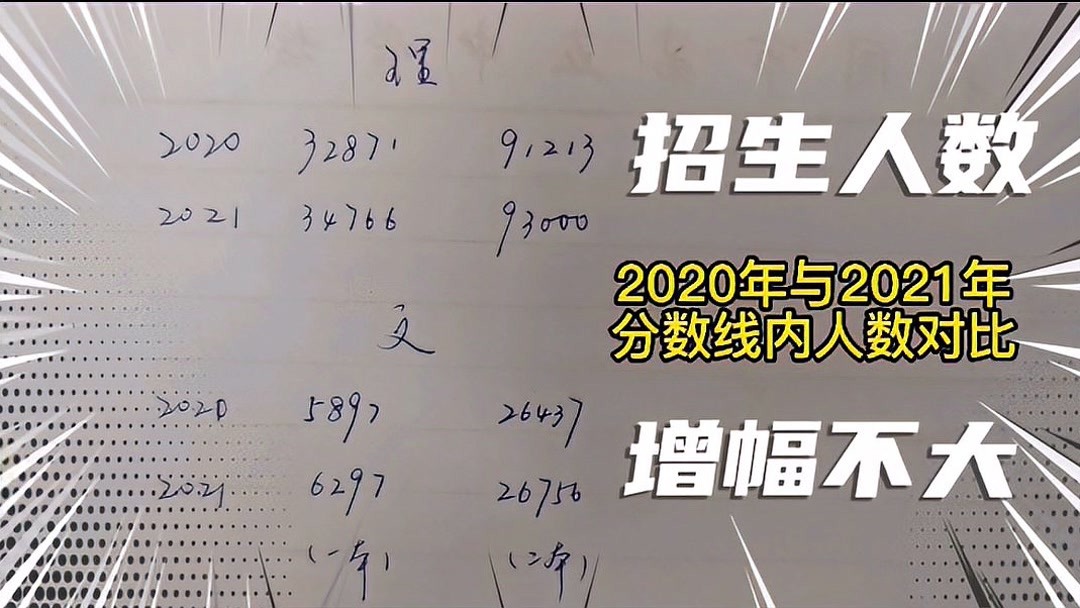 理
2020 32871 91213
2021 34766 93000
文
2020 5897 26437
2021 6297 26756
(一本) (二本)
招生人数
2020年与2021年
分数线内人数对比
增幅不大